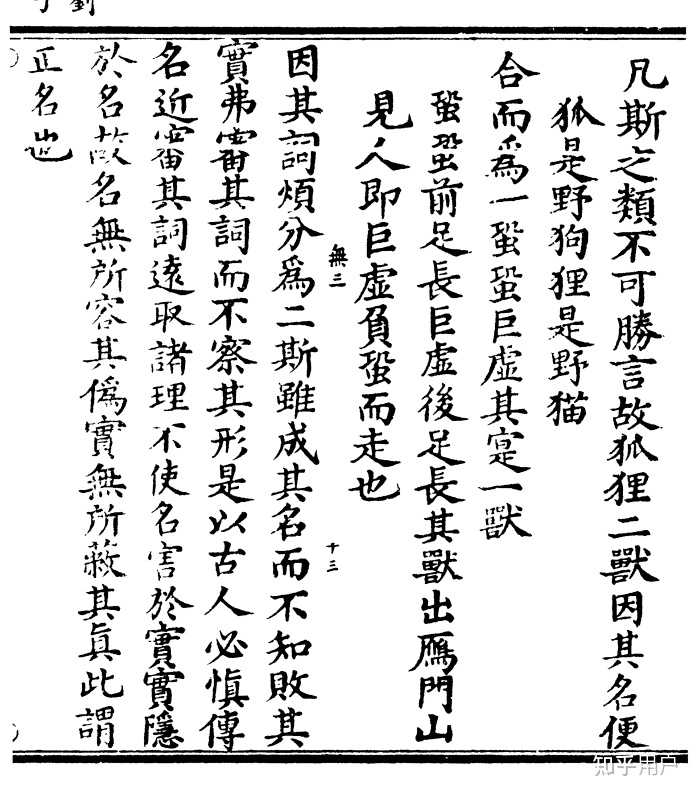 凡斯之類不可勝言故狐狸二獸因其名便
狐是野狗狸是野猫
合而爲一蛩蛩巨虛其寔一獸
蛩蛩前足長巨虛後足長其獸出鴈門山
見人即巨虛負蛩而走也
因其詞煩分爲二斯雖成其名而不知敗其
實弗審其詞而不察其形是以古人必慎傳
名近審其詞遠取諸理不使名害於實實隱
於名故名無所容其僞實無所蔽其眞此謂
正名也
無三
十三
知乎用户